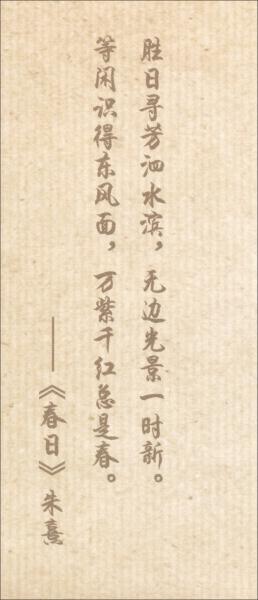 胜日寻芳泗水滨，无边光景一时新。
等闲识得东风面，万紫千红总是春。
——《春日》朱熹